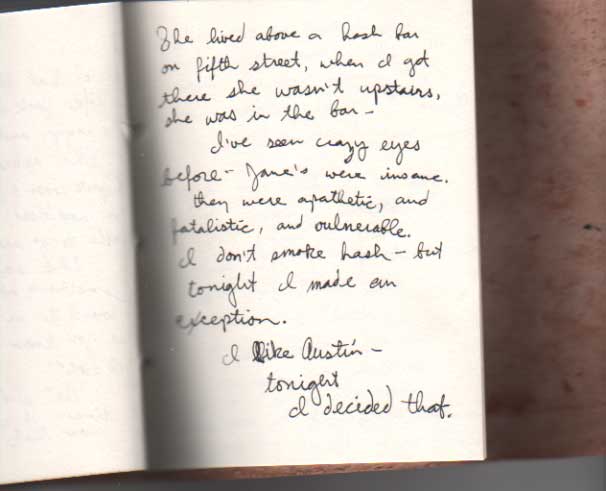 She lived above a hash bar
on fifth street, when I got
there she wasn't upstairs,
she was in the bar -
I've seen crazy eyes
before - Jane's were insane.
they were apathetic, and
fatalistic, and vulnerable.
I don't smoke hash - but
tonight I made an
exception.
I like Austin -
tonight
I decided that.